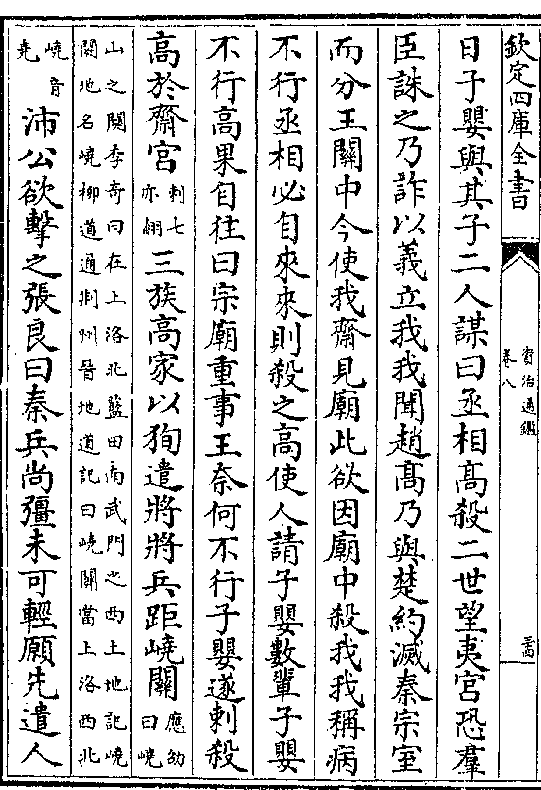 欽定四庫全書
資治通鑑
卷八
日子嬰與其子二人謀曰丞相高殺二世望夷宮恐羣
臣誅之乃詐以義立我我聞趙高乃與楚約滅秦宗室
而分王關中今使我齋見廟此欲因廟中殺我我稱病
不行丞相必自來來則殺之高使人請子嬰數輩子嬰
不行高果自往曰宗廟重事王奈何不行子嬰遂刺殺
高於齋宮刺七亦翻三族高家以狥遣將將兵距嶢關應劭曰嶢
山之關李奇曰在上洛北藍田南武門之西土地記嶢
關地名嶢柳道通荆州晉地道記曰嶢關當上洛西北
嶢音堯沛公欲擊之張良曰秦兵尚彊未可輕願先遣人